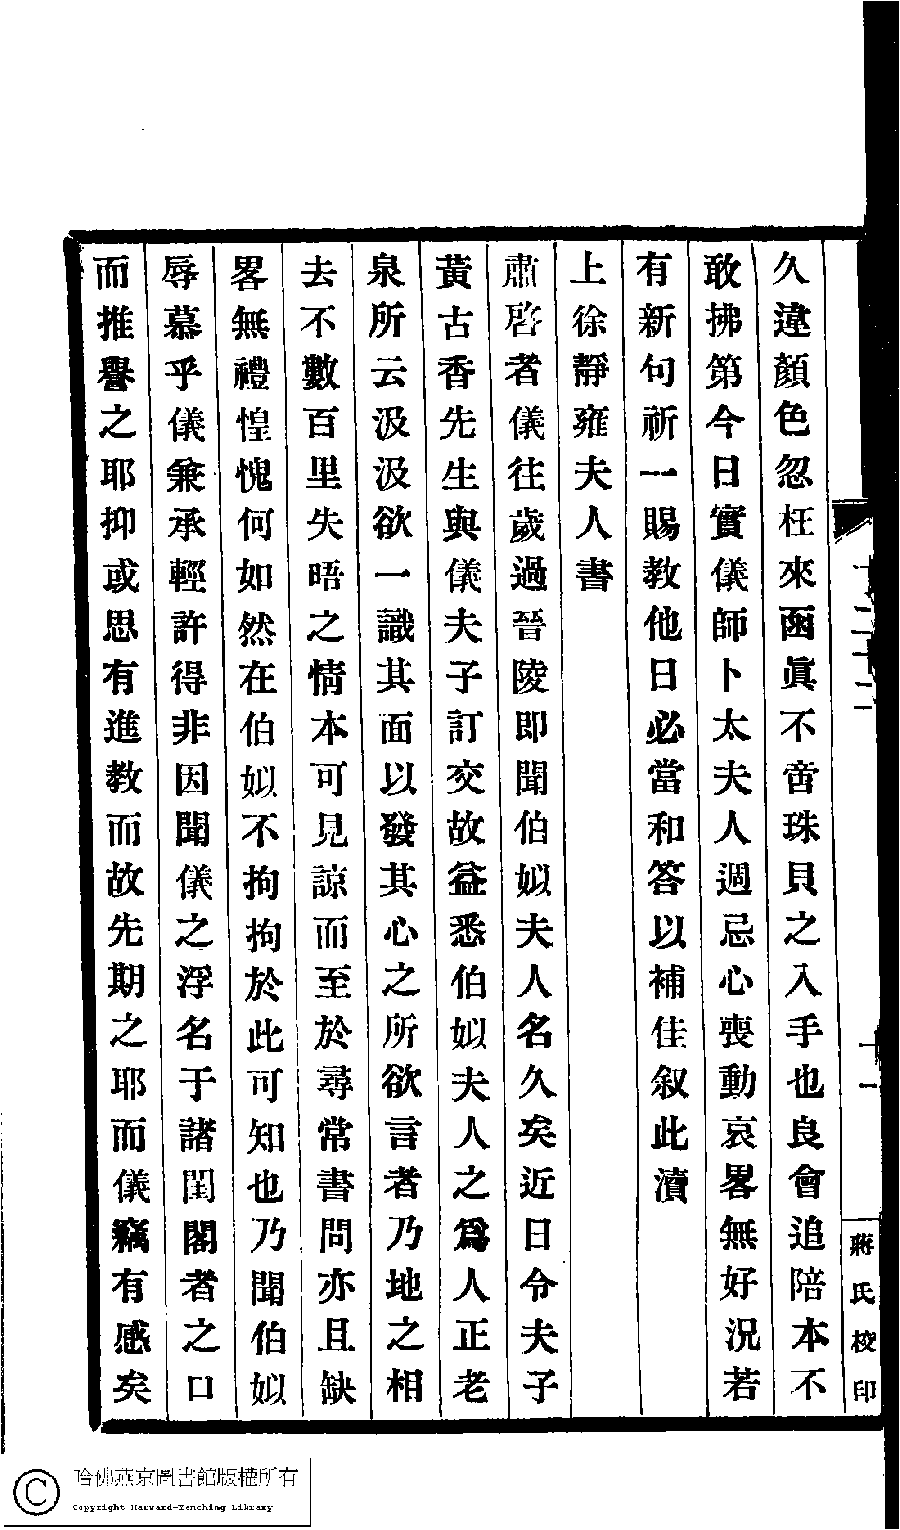 久違顏色忽枉來函眞不啻珠貝之入手也良會追陪本不
敢拂第今日實儀師卜太夫人週忌心喪動哀畧無好況若
有新句祈一賜教他日必當和答以補佳叙此瀆
上徐靜雍夫人書
肅啓者儀往歲過晉陵即聞伯姒夫人名久矣近日令夫子
黃古香先生與儀夫子訂交故益悉伯姒夫人之爲人正老
泉所云汲汲欲一識其面以發其心之所欲言者乃地之相
去不數百里失晤之情本可見諒而至於尋常書問亦且缺
畧無禮惶愧何如然在伯姒不拘拘於此可知也乃聞伯姒
辱慕乎儀兼承輕許得非因聞儀之浮名于諸閨閣者之口
而推譽之耶抑或思有進教而故先期之耶而儀竊有感矣
十一
蔣氏校印
哈佛燕京圖書館版權所有
Copyright Harvard-Yenching Library